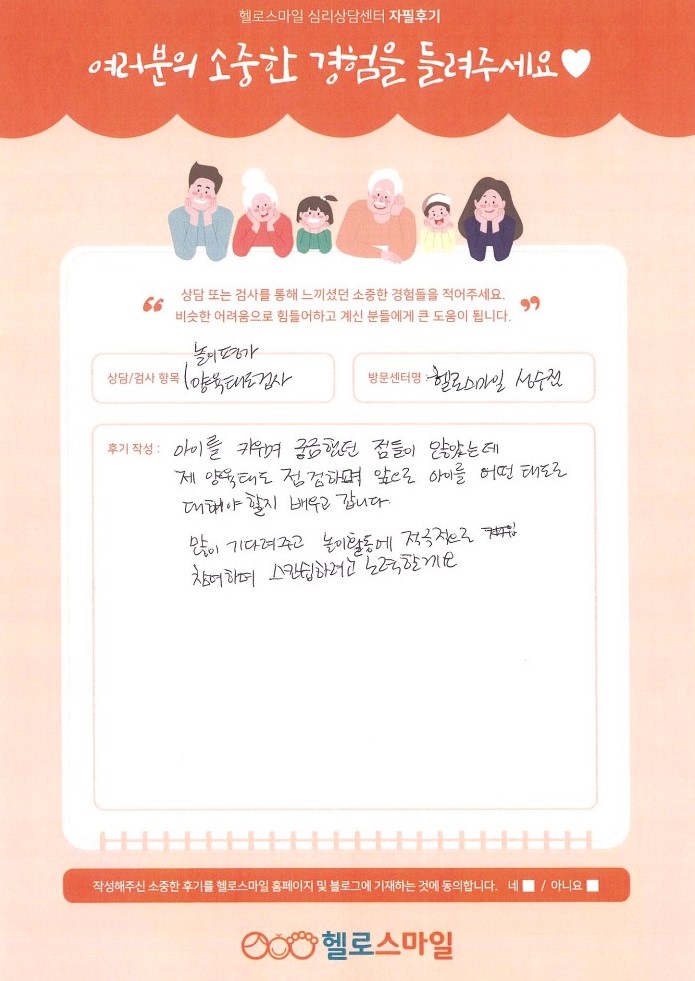 헬로스마일 심리상담센터 자필후기
여러분의 소중한 경험을 들려주세요♥
“ 상담 또는 검사를 통해 느끼셨던 소중한 경험들을 적어주세요.
비슷한 어려움으로 힘들어하고 계신 분들에게 큰 도움이 됩니다. ”
놀이평가
상담/검사 항목 양육태도검사
방문센터명 : 헬로스마일 성수점
후기 작성 : 아이를 키우며 궁금했던 점들이 많았는데
제 양육태도 점검하며 앞으로 아이를 어떤 태도로
대해야 할지 배우고 갑니다.
많이 기다려주고 놀이활동에 적극적으로
참여하며 스킨쉽하려고 노력할게요
작성해주신 소중한 후기를 헬로스마일 홈페이지 및 블로그에 기재하는 것에 동의합니다. 네 ■ / 아니요 ■
헬로스마일